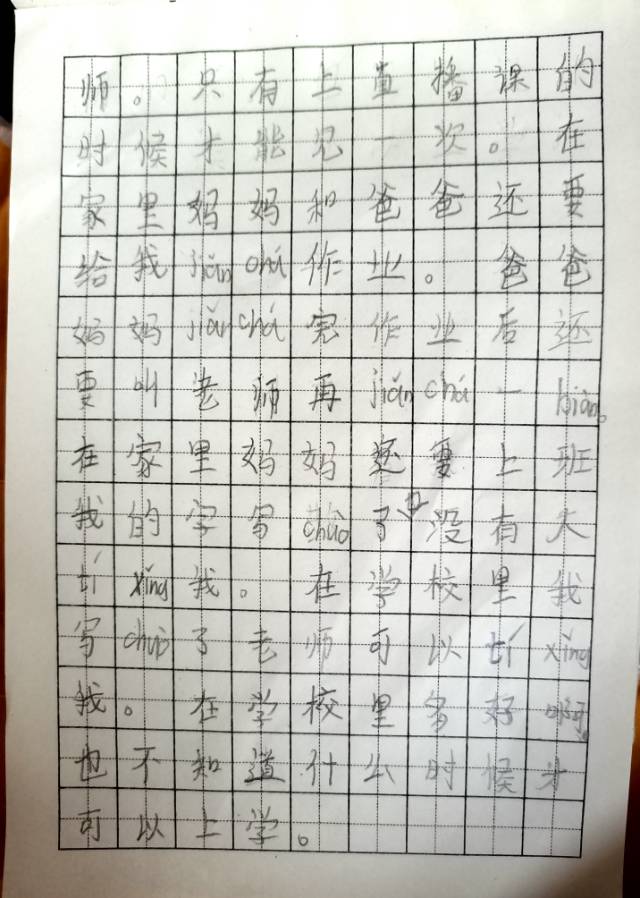 师。只有上直播课的
时候才能见一次。在
家里妈妈和爸爸还要
给我jiǎn chá作业。爸爸
妈妈jiǎn chá完作业后还
要叫老师再jiǎn chá一biàn。
在家里妈妈还要上班
我的字写chuò了也没有人
tí xǐng我。在学校里我
写chuò了老师可以tí xǐng
我。在学校里多好啊。
也不知道什么时候才
可以上学。